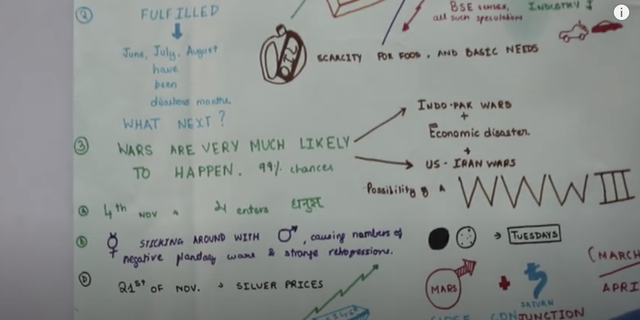 2 FULFILLED
BSE SENSEX,
all such speculations
INDUSTRY
June, July, August
have
been
disastous months
OIL
SCARCITY FOR FOOD, AND BASIC NEEDS
WHAT NEXT?
3 WARS ARE VERY MUCH LIKELY
TO HAPPEN. 99% chances
INDO-PAK WARS
+
Economic disaster
+
US-IRAN WARS
Possibility of a WWW III
4th NOV 24 enters धनुष
STICKING AROUND WITH ♂, causing numbers of
negative planetary wars & strange retrogressions.
→ TUESDAYS
21st OF NOV. → SILVER PRICES
MARS
+
SATURN
CONJUNCTION
(MARCH
APRI